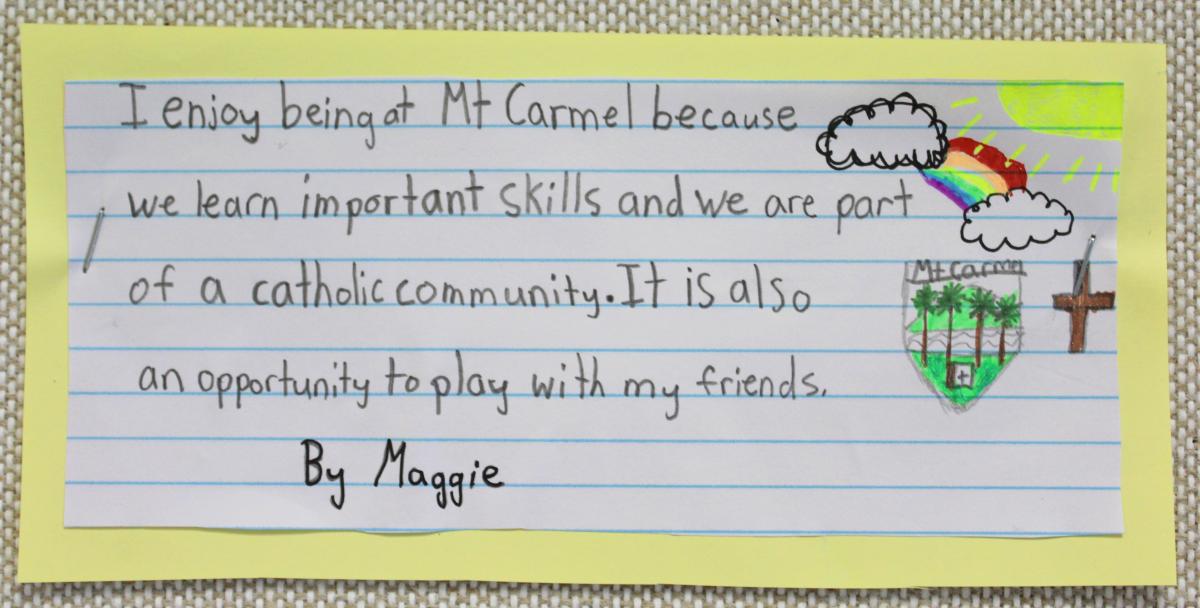 I enjoy being at Mt Carmel because
we learn important skills and we are part
of a catholic community. It is also
an opportunity to play with my friends.
By Maggie
Mt Carmel